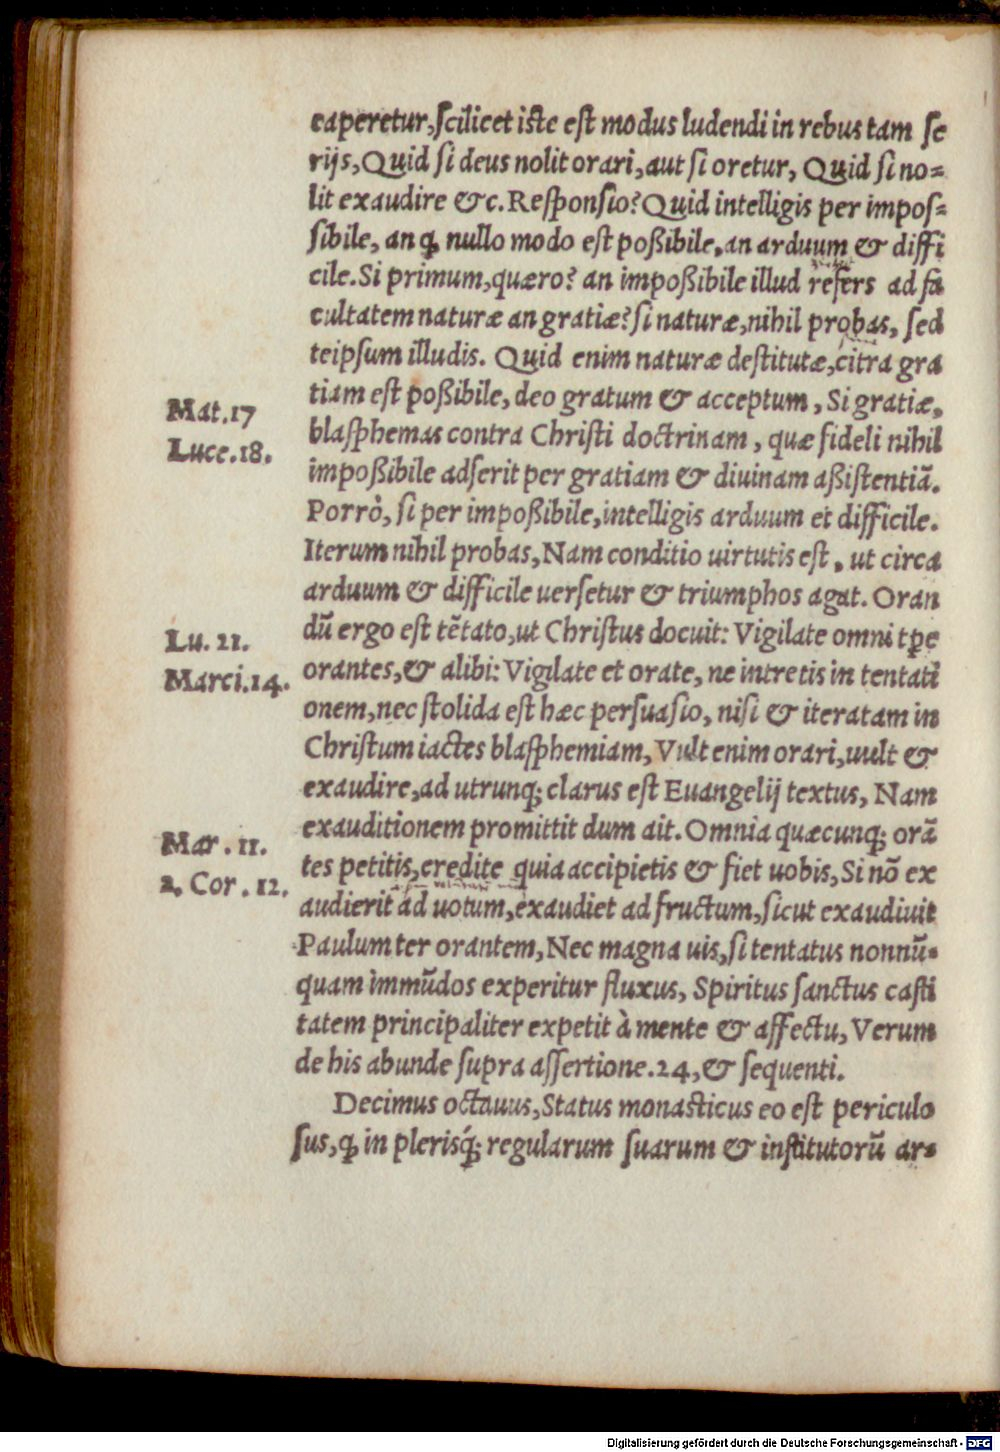 caperetur, scilicet iste est modus ludendi in rebus tam se
rijs, Quid si deus nolit orari, aut si oretur, Quid si no=
lit exaudire &c. Responsio? Quid intelligis per impos=
sibile, an ꝙ nullo modo est poßibile, an arduum & diffi
cile. Si primum, quæro? an impoßibile illud refers ad fa
cultatem naturæ an gratiæ? si naturæ, nihil probas, sed
teipsum illudis. Quid enim naturæ destitutæ, citra gra
tiam est poßibile, deo gratum & acceptum, Si gratiæ,
Mat. 17
blasphemas contra Christi doctrinam, quæ fideli nihil
Luce. 18.
impoßibile adserit per gratiam & diuinam aßistentiā.
Porrò, si per impoßibile, intelligis arduum et difficile.
Iterum nihil probas, Nam conditio uirtutis est, ut circa
arduum & difficile uersetur & triumphos agat. Oran
dū ergo est tētato, ut Christus docuit: Vigilate omni tꝑe
Lu. 21.
orantes, & alibi: Vigilate et orate, ne intretis in tentati
Marci. 14.
onem, nec stolida est hæc persuasio, nisi & iteratam in
Christum iactes blasphemiam, Vult enim orari, uult &
exaudire, ad utrunq; clarus est Euangelij textus, Nam
exauditionem promittit dum ait. Omnia quæcunq; orā
Mar. 11.
tes petitis, credite quia accipietis & fiet uobis, Si nō ex
2. Cor. 12.
audierit ad uotum, exaudiet ad fructum, sicut exaudiuit
Paulum ter orantem, Nec magna uis, si tentatus nonnū=
quam immūdos experitur fluxus, Spiritus sanctus casti
tatem principaliter expetit à mente & affectu, Verum
de his abunde supra assertione. 24, & sequenti.
Decimus octauus, Status monasticus eo est periculo
sus, ꝙ in plerisq́; regularum suarum & institutorū ar=
Digitalisierung gefördert durch die Deutsche Forschungsgemeinschaft - DFG